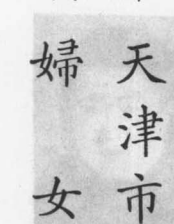 天津市
婦女